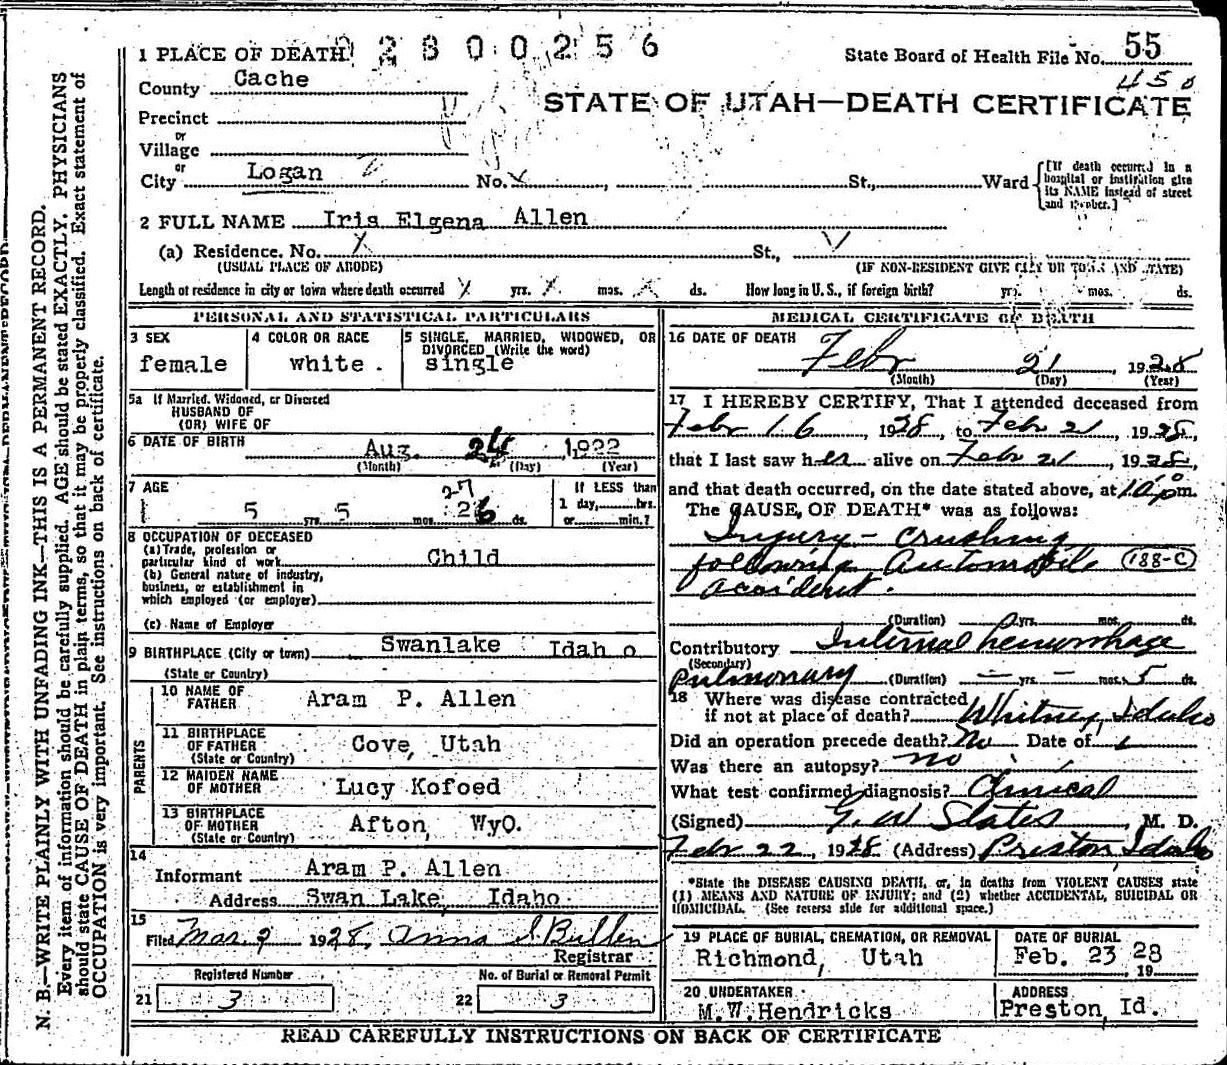 N. B.—WRITE PLAINLY WITH UNFADING INK—THIS IS A PERMANENT RECORD.
Every item of information should be carefully supplied. AGE should be stated EXACTLY. PHYSICIANS
should state CAUSE OF DEATH in plain terms, so that it may be properly classified. Exact statement of
OCCUPATION is very important. See instructions on back of certificate.
1 PLACE OF DEATH 2 8 0 0 2 5 6 State Board of Health File No. 55
450
County Cache
STATE OF UTAH—DEATH CERTIFICATE
Precinct
or
Village
or
City Logan No. x St., Ward
[If death occurred in a
hospital or institution give
its NAME instead of street
and number.]
2 FULL NAME Iris Elgena Allen
(a) Residence. No. St.,
(USUAL PLACE OF ABODE) (IF NON-RESIDENT GIVE CITY OR TOWN AND STATE)
Length of residence in city or town where death occurred yrs. mos. ds. How long in U. S., if foreign birth? yrs. mos. ds.
PERSONAL AND STATISTICAL PARTICULARS
3 SEX
female
4 COLOR OR RACE
white .
5 SINGLE, MARRIED, WIDOWED, OR
DIVORCED (Write the word)
single
5a If Married, Widowed, or Divorced
HUSBAND OF
(OR) WIFE OF
6 DATE OF BIRTH
Aug. 24 1922
(Month) (Day) (Year)
7 AGE
27
5 yrs. 5 mos. 26 ds.
If LESS than
1 day, hrs.
or min.?
8 OCCUPATION OF DECEASED
(a) Trade, profession or
particular kind of work Child
(b) General nature of industry,
business, or establishment in
which employed (or employer)
(c) Name of Employer
9 BIRTHPLACE (City or town) Swanlake Idah o
(State or Country)
PARENTS
10 NAME OF
FATHER Aram P. Allen
11 BIRTHPLACE
OF FATHER Cove, Utah
(State or Country)
12 MAIDEN NAME
OF MOTHER Lucy Kofoed
13 BIRTHPLACE
OF MOTHER Afton, WyO.
(State or Country)
14
Informant Aram P. Allen
Address Swan Lake, Idaho.
15
Filed Mar. 2 1928, Anna S. Bullen
Registrar
Registered Number
21 3
No. of Burial or Removal Permit
22 3
MEDICAL CERTIFICATE OF DEATH
16 DATE OF DEATH
Febr 21, 1928
(Month) (Day) (Year)
17 I HEREBY CERTIFY, That I attended deceased from
Febr 16, 1928, to Febr 21, 1928,
that I last saw her alive on Febr 21, 1928,
and that death occurred, on the date stated above, at 10 pm.
The CAUSE OF DEATH* was as follows:
Injury - crushing
following Automobile (188-C)
accident.
(Duration) yrs. mos. ds.
Contributory Internal hemorrhage
(Secondary)
Pulmonary (Duration) — yrs. — mos. 5 ds.
18 Where was disease contracted
if not at place of death? Whitney, Idaho
Did an operation precede death? No Date of
Was there an autopsy? no
What test confirmed diagnosis? Clinical
(Signed) G. W States, M. D.
Febr 22, 1928 (Address) Preston, Idaho
*State the DISEASE CAUSING DEATH, or, in deaths from VIOLENT CAUSES state
(1) MEANS AND NATURE OF INJURY; and (2) whether ACCIDENTAL, SUICIDAL OR
HOMICIDAL. (See reverse side for additional space.)
19 PLACE OF BURIAL, CREMATION, OR REMOVAL
Richmond, Utah
DATE OF BURIAL
Feb. 23 28
19
20 UNDERTAKER
M.W.Hendricks
ADDRESS
Preston, Id.
READ CAREFULLY INSTRUCTIONS ON BACK OF CERTIFICATE